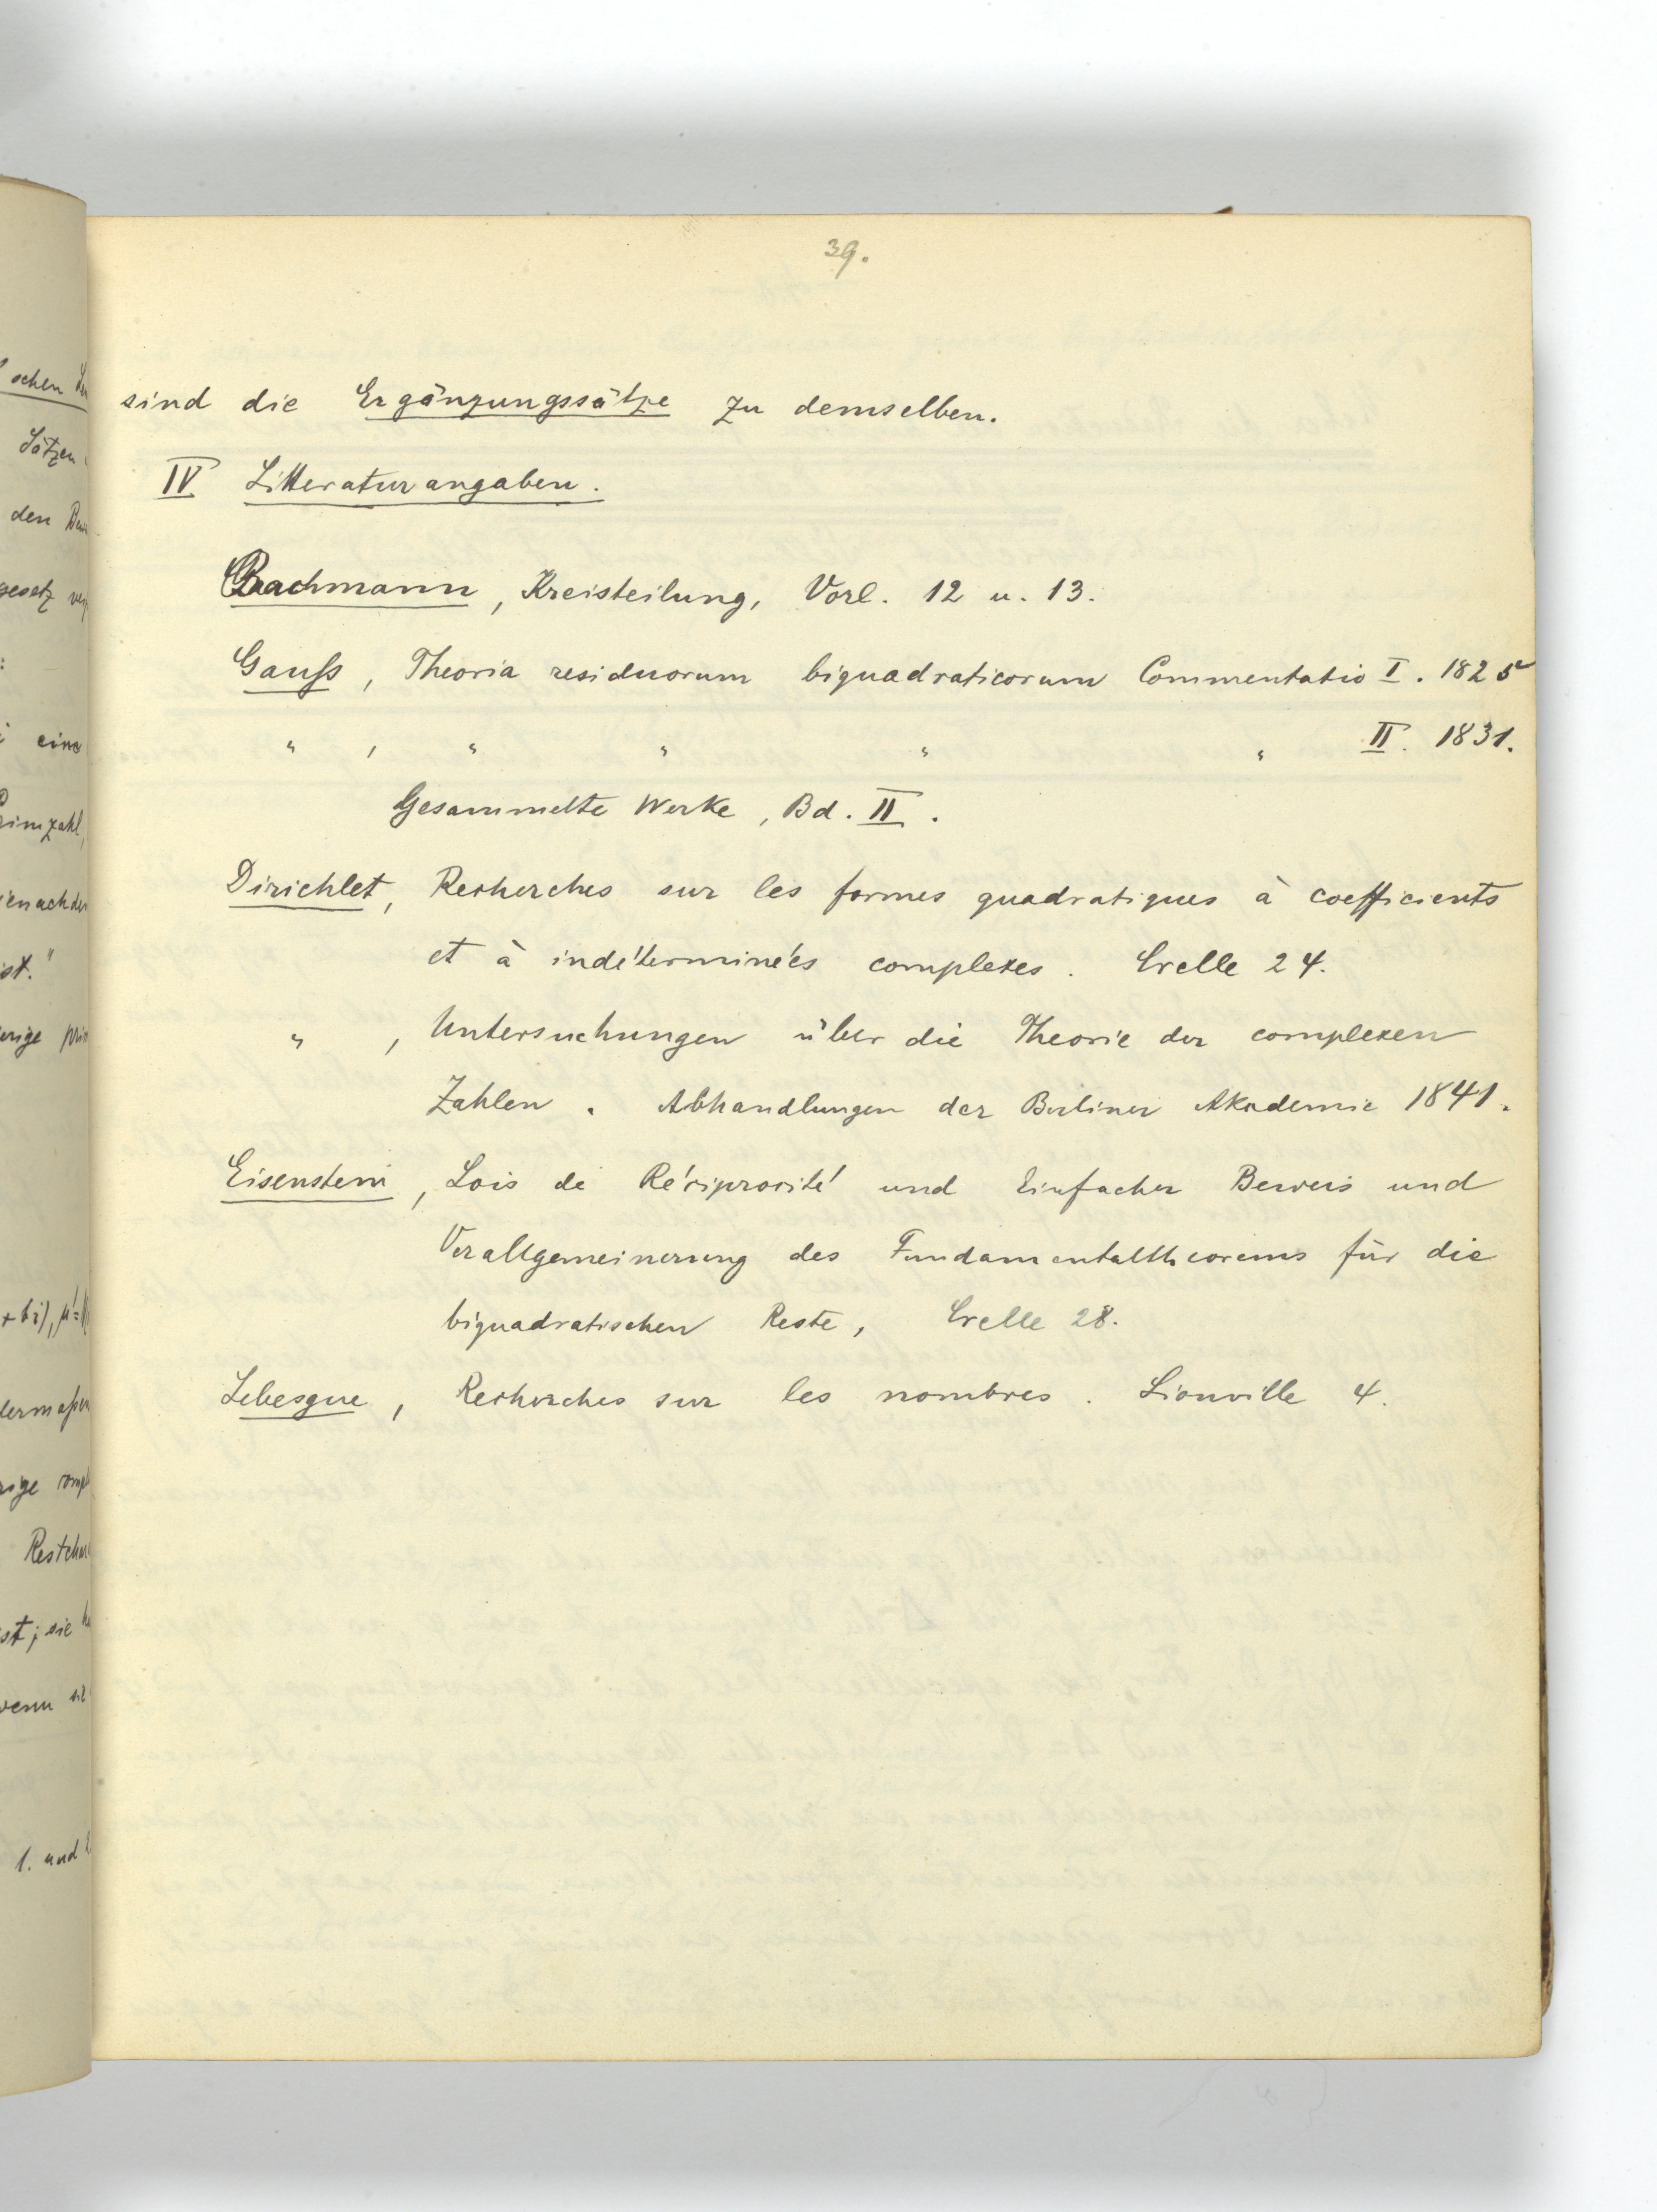 39.
sind die Ergänzungssätze zu demselben.
IV Litteraturangaben.
Bachmann, Kreisteilung, Vorl. 12 u. 13.
Gauſs, Theoria residuorum biquadraticorum Commentatio I. 1825
" , " " " " II. 1831.
Gesammelte Werke, Bd. II.
Dirichlet, Recherches sur les formes quadratiques à coefficients
et à indéterminées complexes. Crelle 24.
" , Untersuchungen über die Theorie der complexen
Zahlen. Abhandlungen der Berliner Akademie 1841.
Eisenstein, Lois de Réciprocité und Einfacher Beweis und
Verallgemeinerung des Fundamentaltheorems für die
biquadratischen Reste, Crelle 28.
Lebesgue, Recherches sur les nombres. Liouville 4.